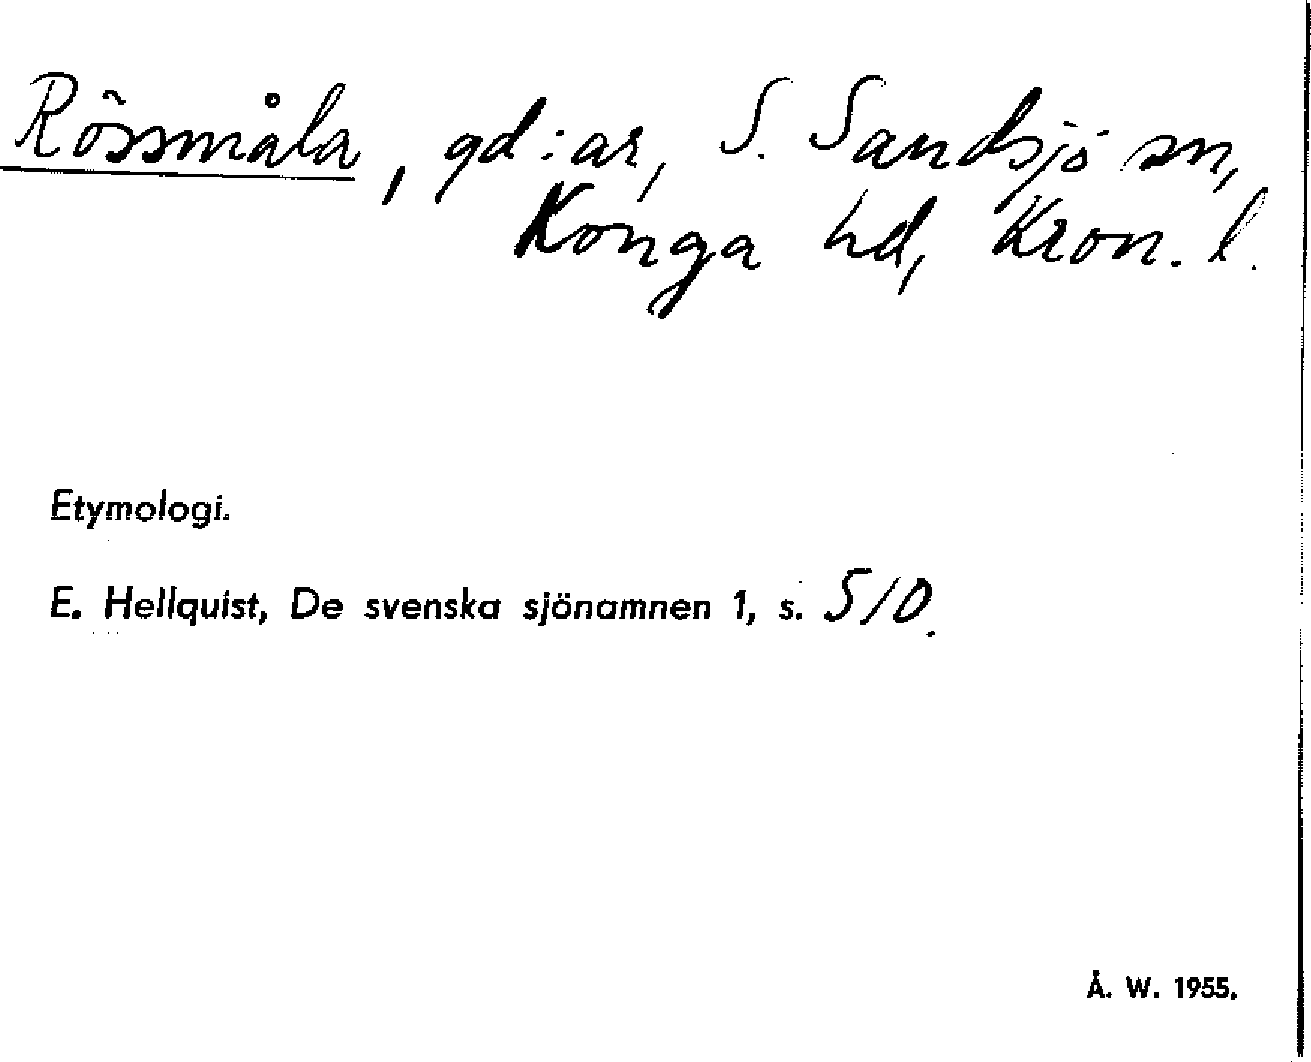 Rössmåla, gd:ar, S. Sandsjö sn,
Konga hd, Kron. l.
Etymologi.
E. Hellquist, De svenska sjönamnen 1, s. 510.
Å. W. 1955.